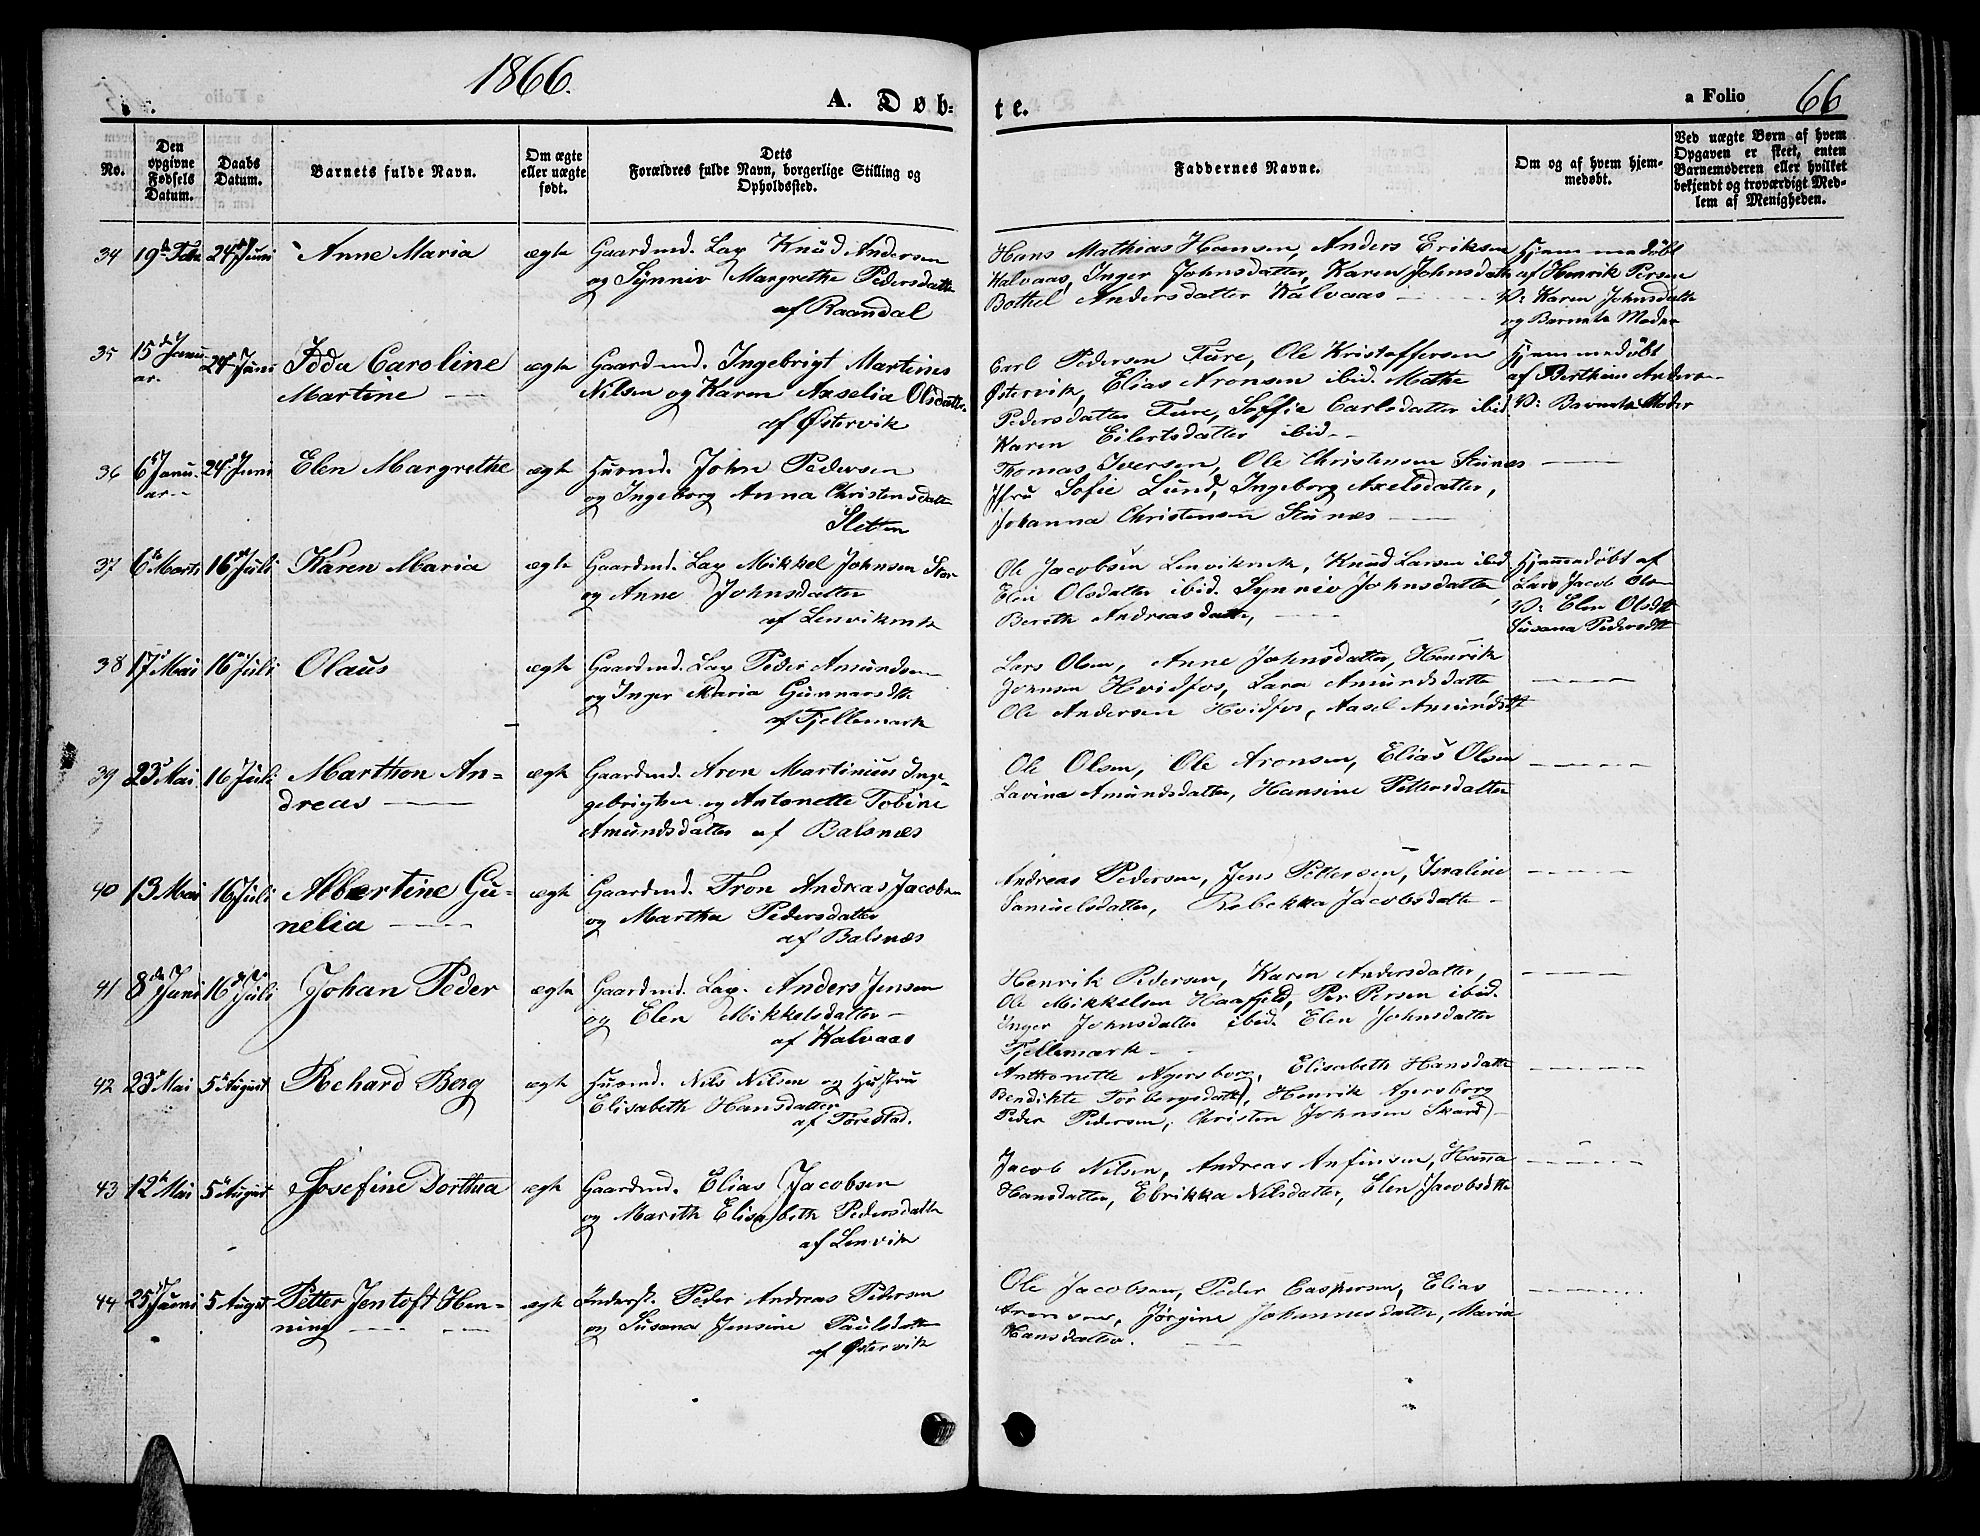 1866.
A. Døb-
te.
a Folio 66
No.
Den opgivne Fødsels Datum.
Daabs Datum.
Barnets fulde Navn.
Om ægte eller uægte født.
Dets Forældres fulde Navn, borgerlige Stilling og Opholdssted.
Faddernes Navne.
Om og af hvem hjemmedøbt.
Ved uægte Børn af hvem Opgaven er skeet, enten Barnemoderen eller hvilket bekjendt og troværdigt Medlem af Menigheden.
34 19de Febr 24de Juni Anne Maria ægte Gaardmd. Lap Knud Andersen
og Synniv Margrethe Pedersdatter
af Raandal
Hans Mathias Hansen, Anders Eriksen
Kalvaas, Inger Johnsdatter, Karen Johnsdatter
Bothel Andersdatter Kalvaas
Hjemmedøbt
af Henrik Persen
V: Karen Johnsdatter
og Barnets Moder
35 15de Janu- 24de Juni Idda Caroline ægte Gaardmd. Ingebrigt Martines
ar. Martine Nilsen og Karen Axselia Olsdatter
af Østervik
Carl Pedersen Fure, Ole Kristoffersen
Østervik, Elias Aronsen ibid. Mathe
Pedersdatter Fure, Soffie Carlsdatter ibid
Karen Eilertsdatter ibid
Hjemmedøbt
af Berthine Anders
V: Barnets Moder
36 6te Janu- 24de Juni Elen Margrethe ægte Husmd. John Pedersen
ar og Ingeborg Anna Christensdatter
Sletten
Thomas Iversen, Ole Christensen Stunes
Jfru Sofie Lund, Ingeborg Axelsdatter,
Johanna Christensen Stunes
37 6te Marts 16de Juli Karen Maria ægte Gaardmd. Lap Mikkel Johnsen Stor
og Anne Johnsdatter
af Lenvikmk
Ole Jacobsen Lenvikmk, Knud Larsen ibid
Elen Olsdatter ibid. Synniv Johnsdatter,
Bereth Andreasdatter,
Hjemmedøbt af
Lars Jacob Olsen
V: Elen Olsdt
Susana Pedersdt
38 17de Mai 16de Juli Olaus ægte Gaardmd. Lap Peder Amundsen
og Inger Maria Gunnarsdt.
af Fjellemark
Lars Olsen, Anne Johnsdatter, Henrik
Johnsen Hvidfos, Lara Amundsdatter
Ole Andersen Hvidfos, Aasel Amundsdt
39 23de Mai 16 Juli Marthon An- ægte Gaardmd. Aron Martinius Inge-
dreas gebrigtsen og Antonette Tobine
Amundsdatter af Balsnæs
Ole Olsen, Ole Aronsen, Elias Olsen
Lavina Amundsdatter, Hansine Pettersdatter
40 13 Mai 16 Juli Albertine Gu- ægte Gaardmd. Tron Andreas Jacobsen
nelia og Martha Pedersdatter
af Balsnæs
Andreas Pedersen, Jens Pettersen, Israline
Samuelsdatter, Rebekka Jacobsdatter
41 8de Juni 16de Juli Johan Peder ægte Gaardmd. Lap. Anders Jensen
og Elen Mikkelsdatter
af Kalvaas
Henrik Pedersen, Karen Andersdatter,
Ole Mikkelsen Haafjeld, Per Persen ibid.
Inger Johnsdatter ibid. Elen Johnsdatter
Fjellemark
42 23de Mai 5te August Rchard Berg ægte Husmd. Nils Nilsen og Hustru
Elisabeth Hansdatter
af Torestad.
Anthonette Agersborg, Elisabeth Hansdatter
Bendikte Torbergsdatter, Henrik Agersborg
Peder Pedersen, Christen Johnsen Skard
43 12te Mai 5te August Josefine Dorthea ægte Gaardmd. Elias Jacobsen
og Mareth Elisabeth Pedersdatter
af Lenvik
Jacob Nilsen, Andreas Anfinsen, Hanna
Hansdatter, Ebrikka Nilsdatter, Elen Jacobsdtr
44 25de Juni 5 August Petter Jentoft Hen- ægte Inderst. Peder Andreas Pedersen
ning og Susana Jensine Paulsdatter
af Østervik
Ole Jacobsen, Peder Caspersen, Elias
Aronsen, Jørgine Johannesdatter, Maria
Hansdatter.